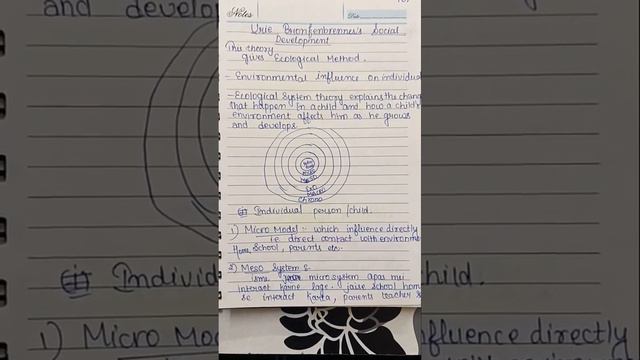 Notes
Date
Urie Bronfenbrenner's Social
Development
This theory
gives Ecological Method.
- Environmental influence on individual
- Ecological System theory explains the chang
that happen in a child and how a child's
environment affects him as he grows
and develops
Micro
Meso
Exo
Macro
Chrono
Individual person/child.
1) Micro Model :- which influence directly
ie direct contact with environme
Home, School, parents etc.
2) Meso System :
isme micro system apas mei
interact karne lage. jaise school hom
se interact karta, parents teacher s
Individ
child.
1) Micro Mo
nfluence directly